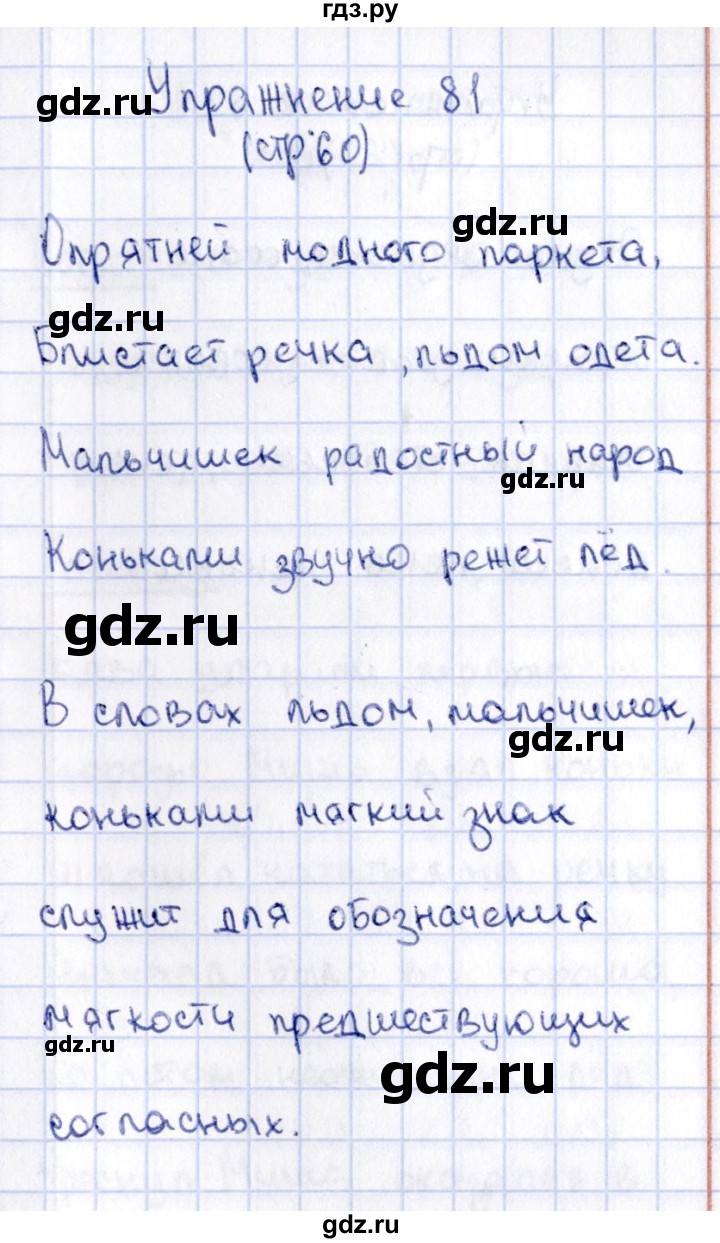 гдз.ру
gdz.ru
Упражнение 81
(стр. 60)
gdz.ru
Опрятней модного паркета,
gdz.ru
Блистает речка, льдом одета.
Мальчишек радостный народ
gdz.ru
Коньками звучно режет лёд.
gdz.ru
В словах льдом, мальчишек,
gdz.ru
коньками мягкий знак
служит для обозначения
мягкости предшествующих
gdz.ru
gdz.ru
согласных.
gdz.ru